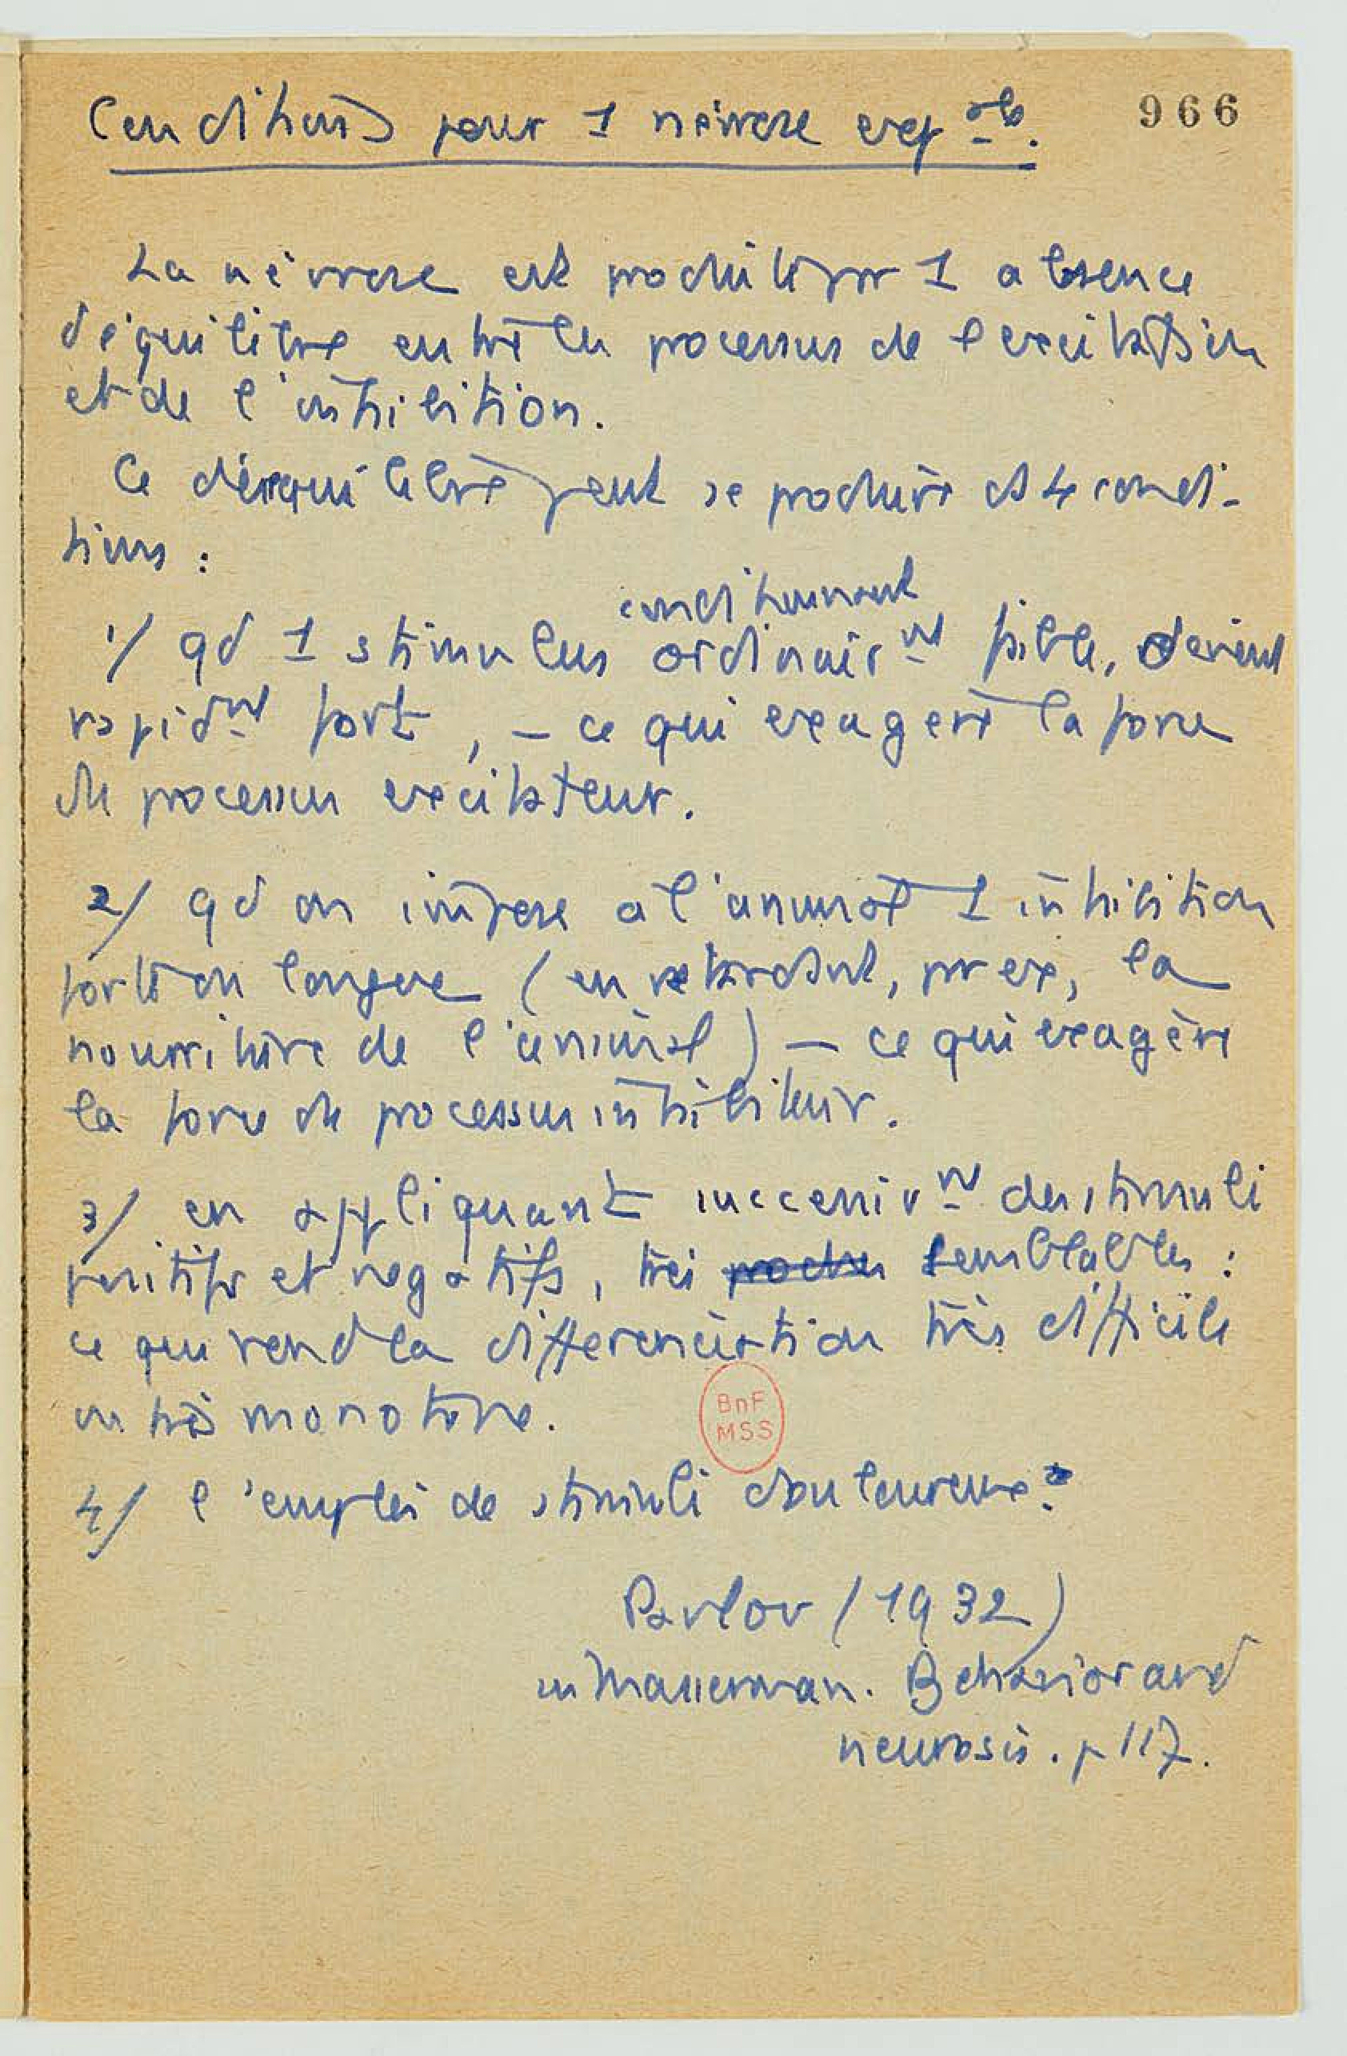 Conditions pour 1 névrose expale. 966
La névrose est produite par 1 absence
d'équilibre entre les processus de l'excitation
et de l'inhibition.
Ce déséquilibre peut se produire ds 4 condi-
tions :
conditionnant
1/ qd 1 stimulus ordinairmt faible, devient
rapidmt forte, – ce qui exagère la force
du processus excitateur.
2/ qd on impose à l'animal 1 inhibition
forte ou longue (en retardant, par ex, la
nourriture de l'animal) – ce qui exagère
la force du processus inhibiteur.
3/ en appliquant successivmt des stimuli
positifs et négatifs, très proches semblables :
ce qui rend la différenciation très difficile
ou très monotone.
BnF
MSS
4/ l'emploi de stimuli douloureux.
Pavlov (1932)
in Masserman. Behavior and
neurosis. p 117.